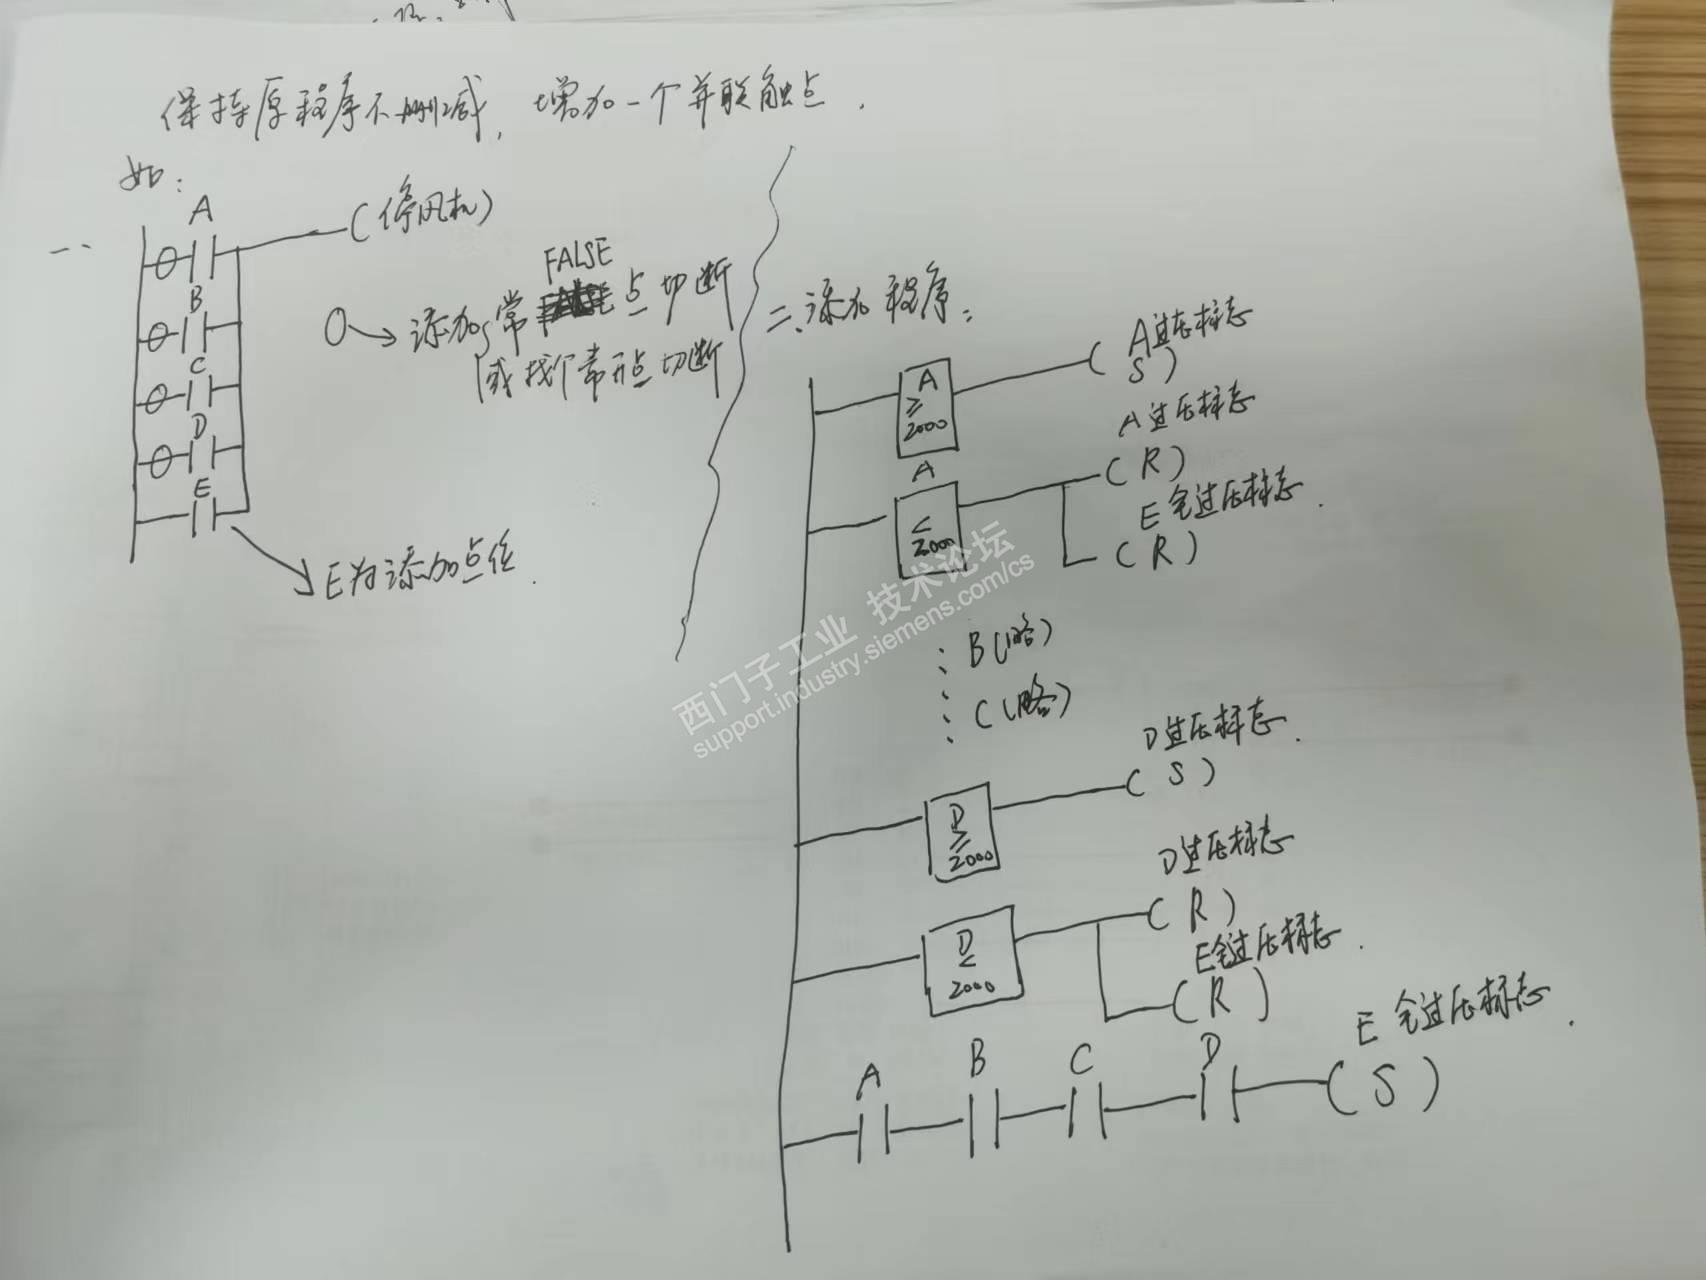 保持原程序不删减, 增加一个并联触点.
如:
一、
A
(停风机)
B
C
D
E
FALSE
O→添加常 点切断
或找个常开点切断
E为添加点位.
二、添加程序:
A ≥ 2000
A过压标志
(S)
A < 2000
A过压标志
(R)
E全过压标志.
(R)
B(略)
C(略)
D ≥ 2000
D过压标志.
(S)
D < 2000
D过压标志
(R)
E全过压标志.
(R)
A B C D
E全过压标志.
(S)
西门子工业 技术论坛
support.industry.siemens.com/cs